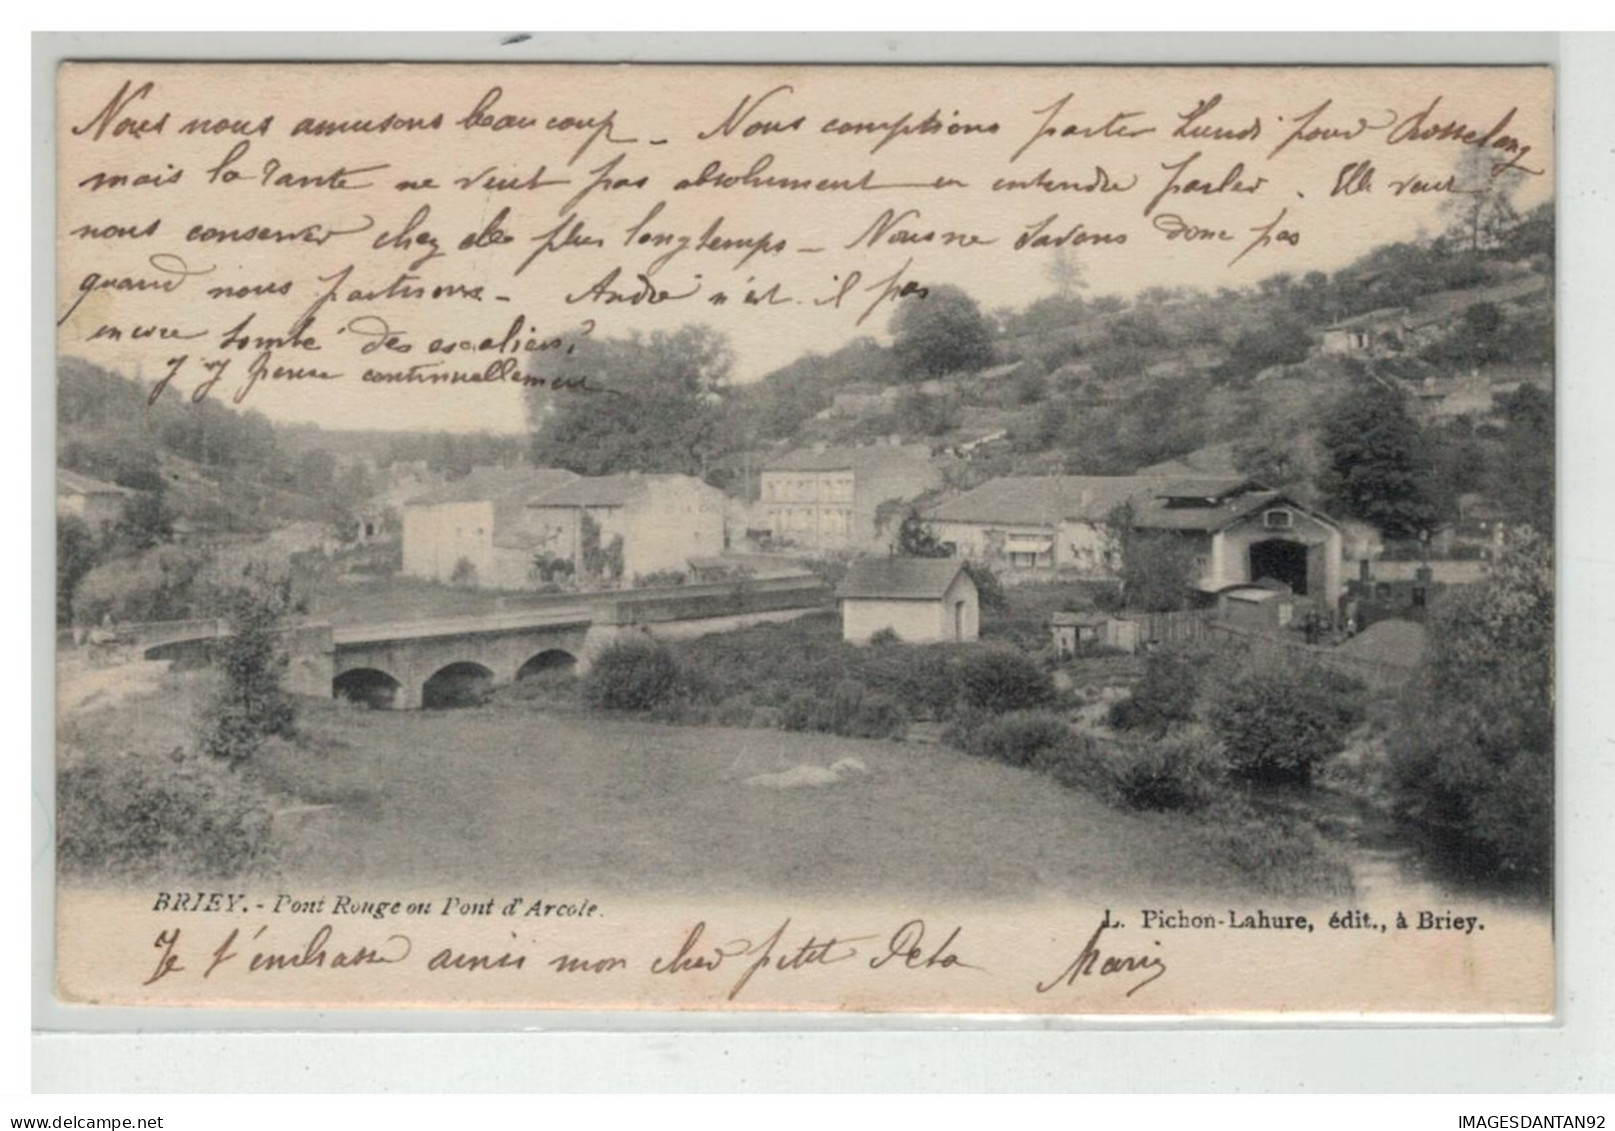 Nous nous amusons beaucoup – Nous comptions partir Lundi pour
mais la Tante ne veut pas absolument en entendre parler. Elle veut
nous conserver chez elle plus longtemps – Nous ne savons donc pas
quand nous partirons – André n'est-il pas
encore tombé des escaliers?
J'y pense continuellement
BRIEY. - Pont Rouge ou Pont d'Arcole.
L. Pichon-Lahure, édit., à Briey.
Je t'embrasse ainsi mon cher petit
Marie
delcampe.net
IMAGESDANTAN92